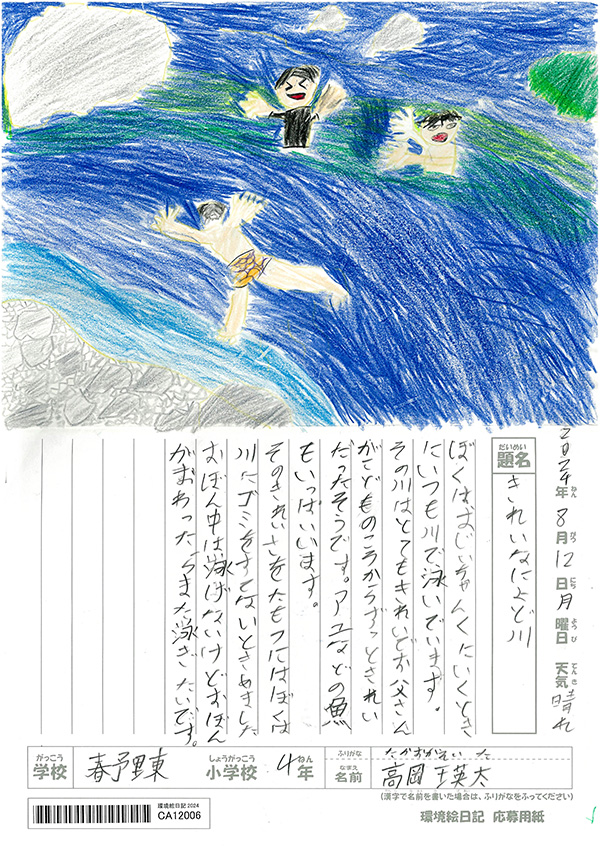 2024年ねん8月がつ12日にち月曜日ようび 天気てんき晴れ
だいめい
題名 きれいなによど川
ぼくは、おじいちゃんくにいくとき
にいつも川で泳いでいます。
その川はとてもきれいでお父さん
がこどものころからずっときれい
だったそうです。アユなどの魚
もいっぱいいます。
そのきれいさをたもつにはぼくは
川にゴミをすてないときめました
おぼん中は泳げないけどおぼん
がおわったらまた泳ぎたいです。
がっこう しょうがっこう ねん ふりがな たかおかえいた
学校 春野東 小学校 4年 なまえ 名前 高岡瑛太
(漢字で名前を書いた場合は、ふりがなをふってください)
環境絵日記 2024
CA12006
環境絵日記 応募用紙